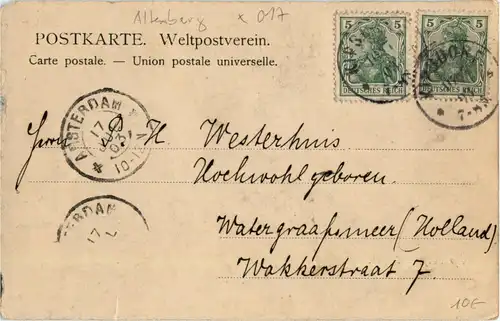 Altenberg x 017
POSTKARTE. Weltpostverein.
Carte postale. — Union postale universelle.
5 5
DEUTSCHES REICH
5 5
DEUTSCHES REICH
* 7-
AMSTERDAM
17
03
10-11V
Herrn H. Westerhuis
Hochwohlgeboren.
Watergraafsmeer (Holland)
Wakkerstraat 7.
ERDAM
17
10€